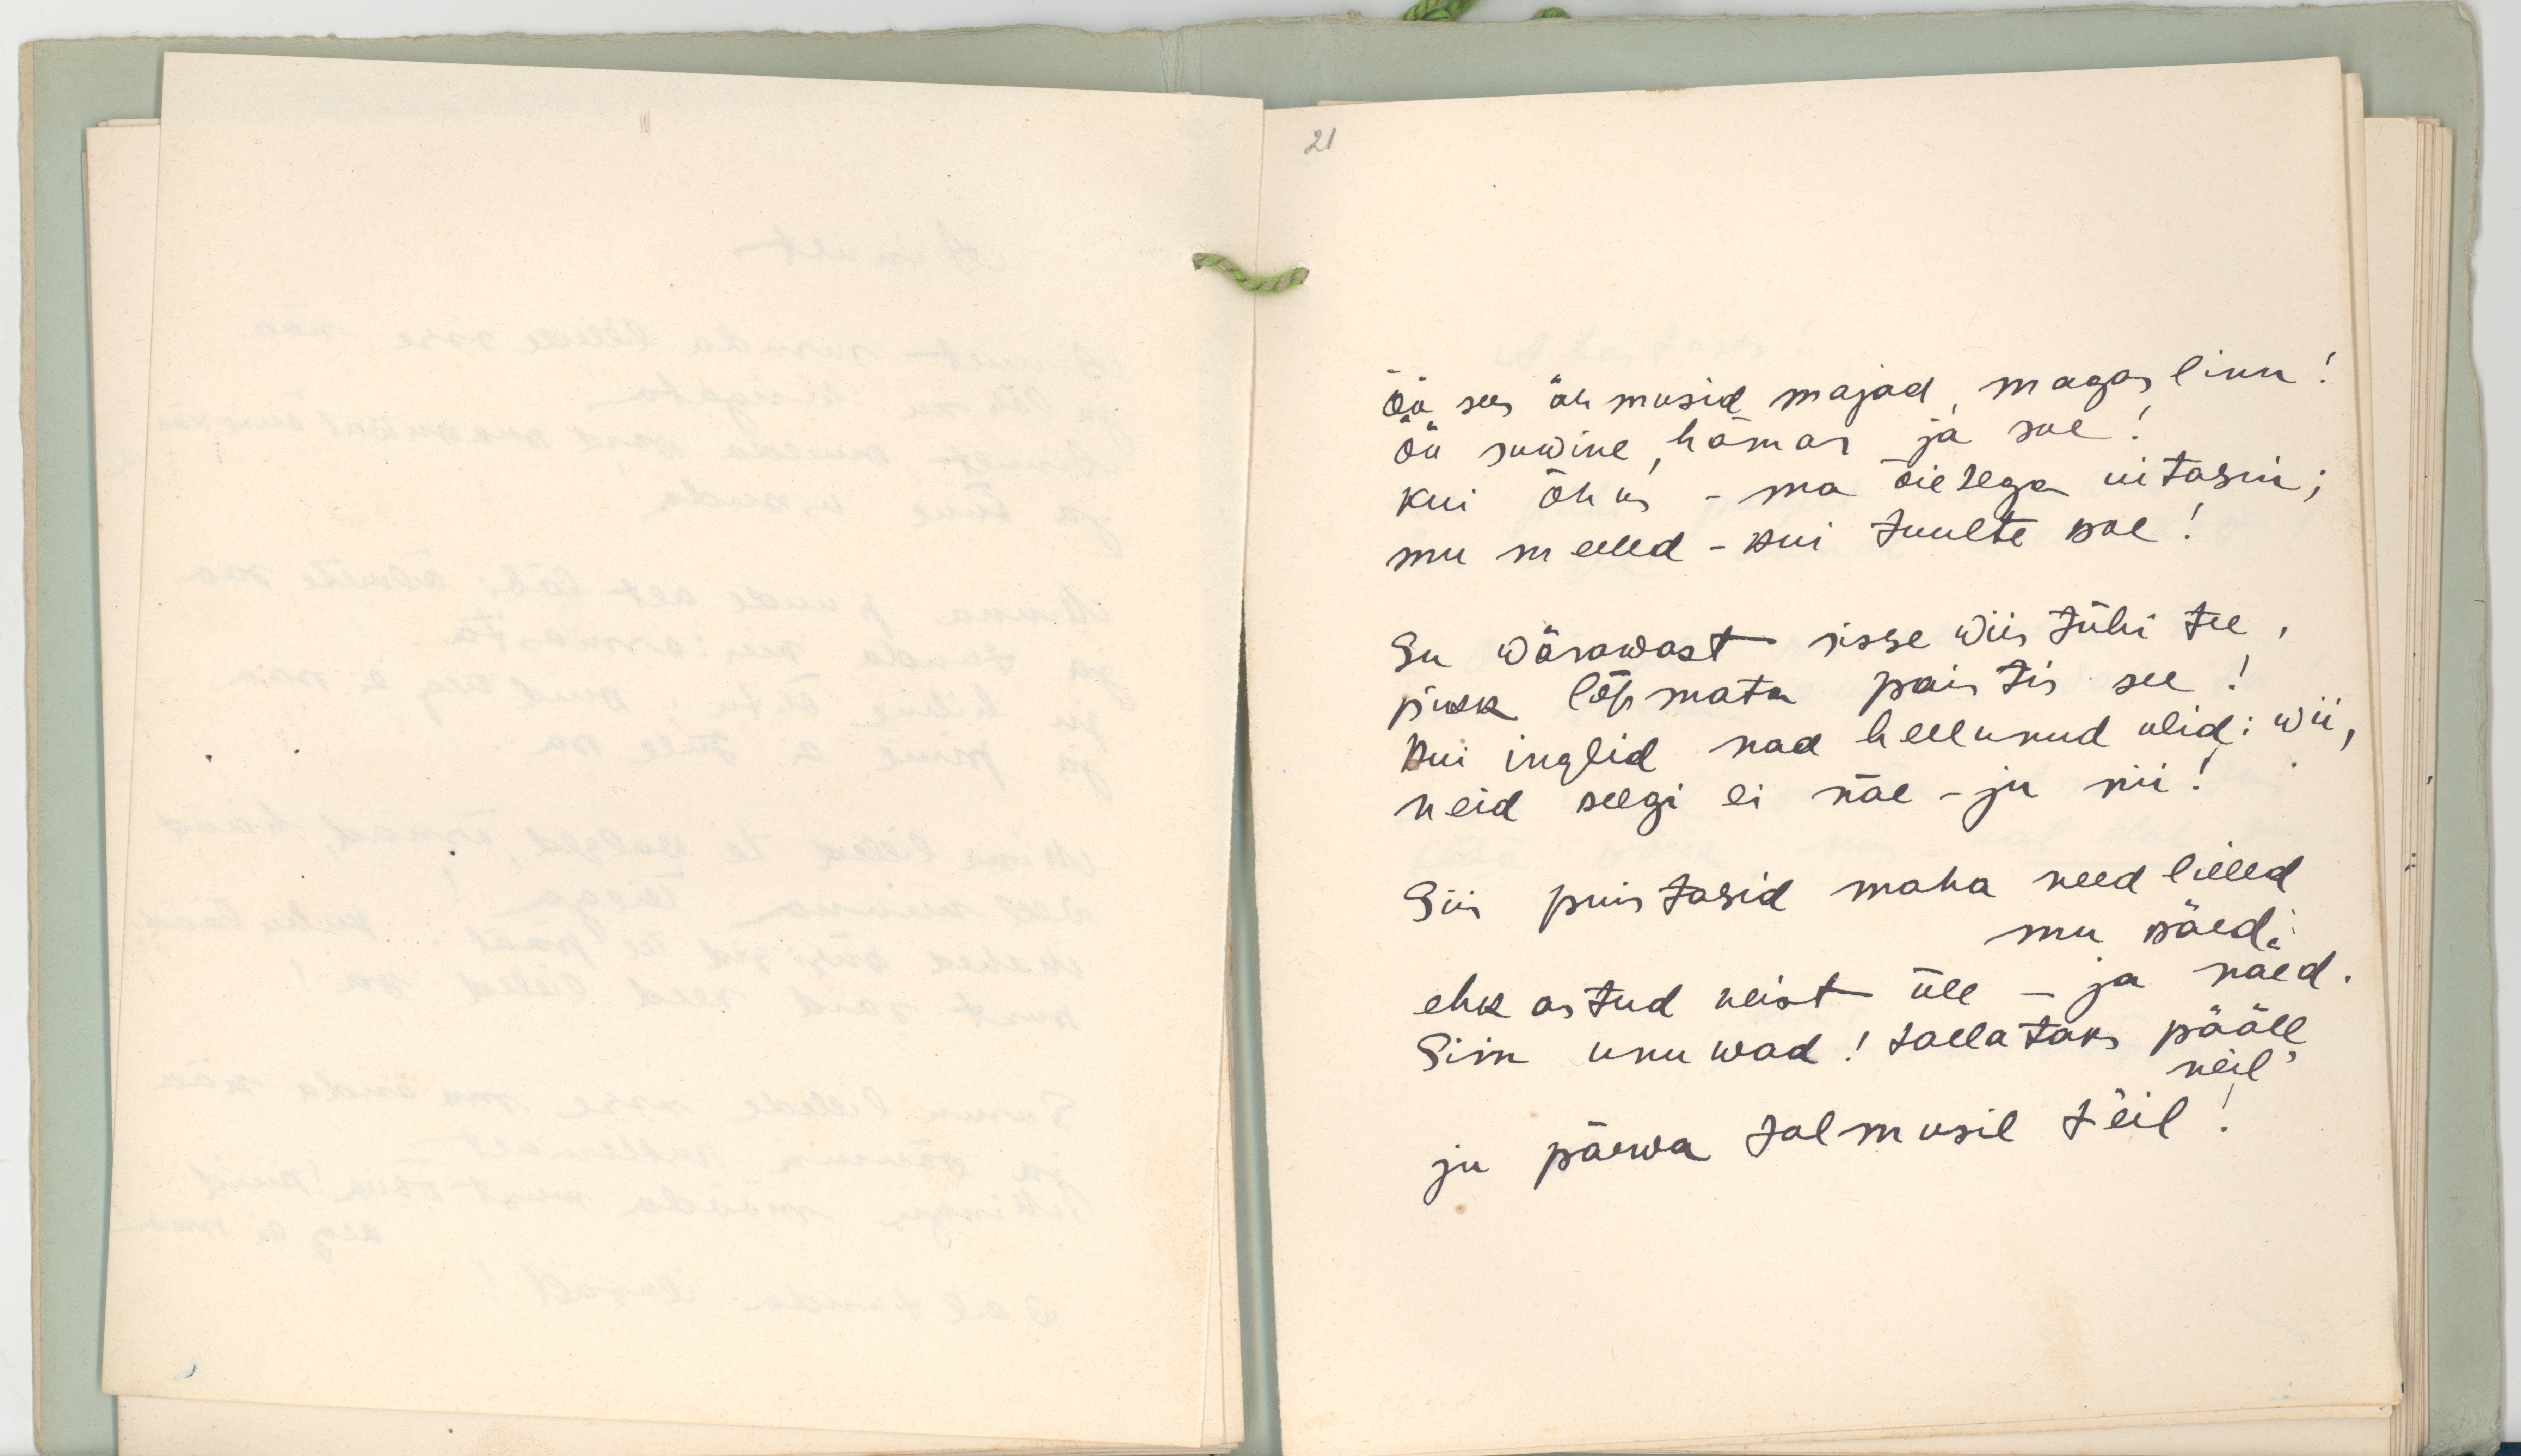 21
öö sees ähmusid majad, magas linn!
öö suwine, hämar ja soe!
kui õhus - ma õietega uitasin;
mu meeled - kui tuulte koe!
Su wärawast sisse wiis tühi tee,
pikk lõpmata paistis see!
kui inglid nad hellunud olid: wii,
neid keegi ei näe - ju nii!
Siis puistasid maha need lilled
mu käed:
ehk astud neist üle - ja näed.
Siin unuwad! tallataks pääle
neil'
ju päewa tolmusil teil!